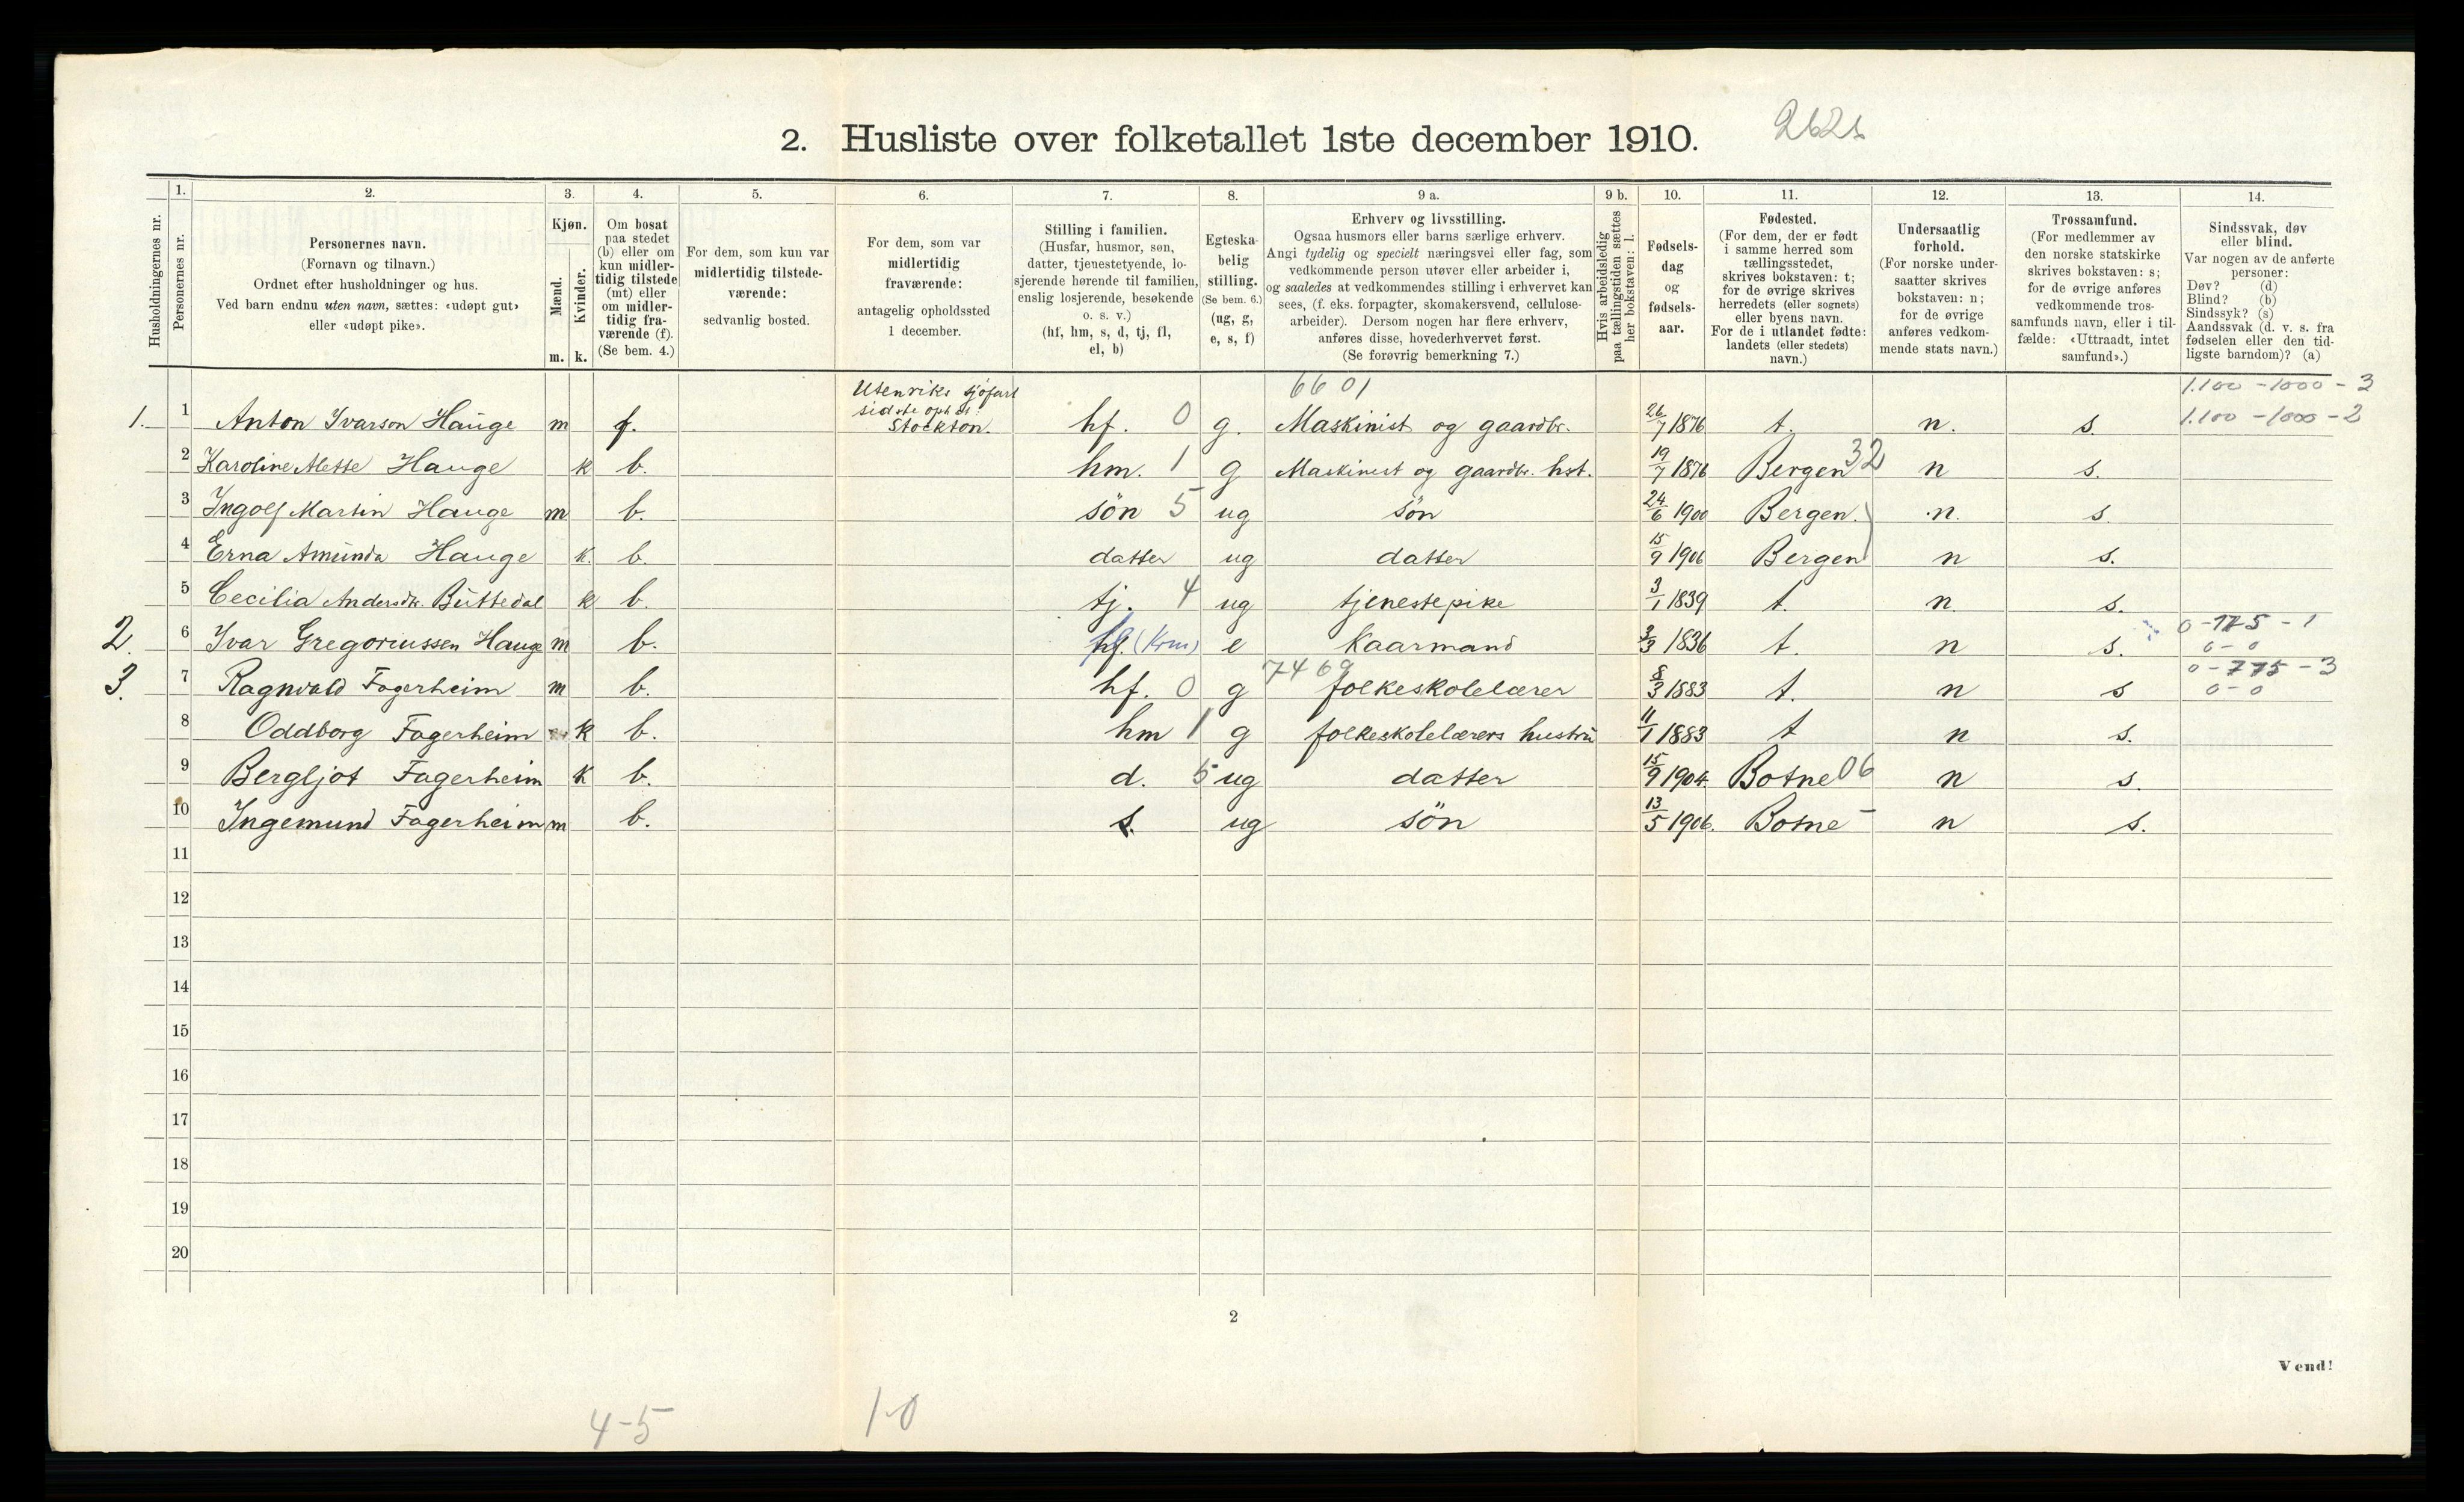 2. Husliste over folketallet 1ste december 1910.
1. 2. 3. 4. 5. 6. 7. 8. 9 a. 9 b. 10. 11. 12. 13. 14.
Husholdningernes nr.
Personernes nr.
Personernes navn.
(Fornavn og tilnavn.)
Ordnet efter husholdninger og hus.
Ved barn endnu uten navn, sættes: «udøpt gut»
eller «udøpt pike».
Kjøn.
Mænd.
Kvinder.
m. k.
Om bosat
paa stedet
(b) eller om
kun midler-
tidig tilstede
(mt) eller
om midler-
tidig fra-
værende (f).
(Se bem. 4.)
For dem, som kun var
midlertidig tilstede-
værende:
sedvanlig bosted.
For dem, som var
midlertidig
fraværende:
antagelig opholdssted
1 december.
Stilling i familien.
(Husfar, husmor, søn,
datter, tjenestetyende, lo-
sjerende hørende til familien,
enslig losjerende, besøkende
o. s. v.)
(hf, hm, s, d, tj, fl,
el, b)
Egteska-
belig
stilling.
(Se bem. 6.)
(ug, g,
e, s, f)
Erhverv og livsstilling.
Ogsaa husmors eller barns særlige erhverv.
Angi tydelig og specielt næringsvei eller fag, som
vedkommende person utøver eller arbeider i,
og saaledes at vedkommendes stilling i erhvervet kan
sees, (f. eks. forpagter, skomakersvend, cellulose-
arbeider). Dersom nogen har flere erhverv,
anføres disse, hovederhvervet først.
(Se forøvrig bemerkning 7.)
Hvis arbeidsledig
paa tællingstiden sættes
her bokstaven: l.
Fødsels-
dag
og
fødsels-
aar.
Fødested.
(For dem, der er født
i samme herred som
tællingsstedet,
skrives bokstaven: t;
for de øvrige skrives
herredets (eller sognets)
eller byens navn.
For de i utlandet fødte:
landets (eller stedets)
navn.)
Undersaatlig
forhold.
(For norske under-
saatter skrives
bokstaven: n;
for de øvrige
anføres vedkom-
mende stats navn.)
Trossamfund.
(For medlemmer av
den norske statskirke
skrives bokstaven: s;
for de øvrige anføres
vedkommende tros-
samfunds navn, eller i til-
fælde: «Uttraadt, intet
samfund».)
Sindssvak, døv
eller blind.
Var nogen av de anførte
personer:
Døv? (d)
Blind? (b)
Sindssyk? (s)
Aandssvak (d. v. s. fra
fødselen eller den tid-
ligste barndom)? (a)
Utenriks sjøfart 6601 1.100 - 1000 - 3
sidste
1. 1 Anton Ivarson Hauge m f. Stockton. hf. 0 g. Maskinist og gaardbr. 26/7 1876 t. n. s. 1.100 - 1000 - 2
2 Karoline Mette Hauge k b. hm. 1 g Maskinist og gaardbr. hst. 19/7 1876 Bergen 32 n s.
3 Ingolf Martin Hauge m b. søn 5 ug søn 24/6 1900 Bergen. n. s.
4 Erna Amunda Hauge k. b. datter ug datter 15/9 1906 Bergen n s.
5 Cecilia Andersdtr. Büttedal k b. tj. 4 ug tjenestepike 3/1 1839 t. n. s.
0 - 175 - 1
2. 6 Ivar Gregoriussen Hauge m b. (Krm) e Kaarmand 3/3 1836 t. n s. 0 - 0
7469 0 - 775 - 3
3. 7 Ragnvald Fagerheim m b. hf. 0 g folkeskolelærer 8/3 1883 t. n s 0 - 0
8 Oddborg Fagerheim k b. hm 1 g folkeskolelærers hustru 11/1 1883 t n s.
9 Bergljot Fagerheim k b. d. 5 ug datter 15/9 1904. Botne 06 n s.
10 Ingemund Fagerheim m b. s. ug søn 13/5 1906. Botne - n s.
11
12
13
14
15
16
17
18
19
20
2
Vend!
4-5 1-0